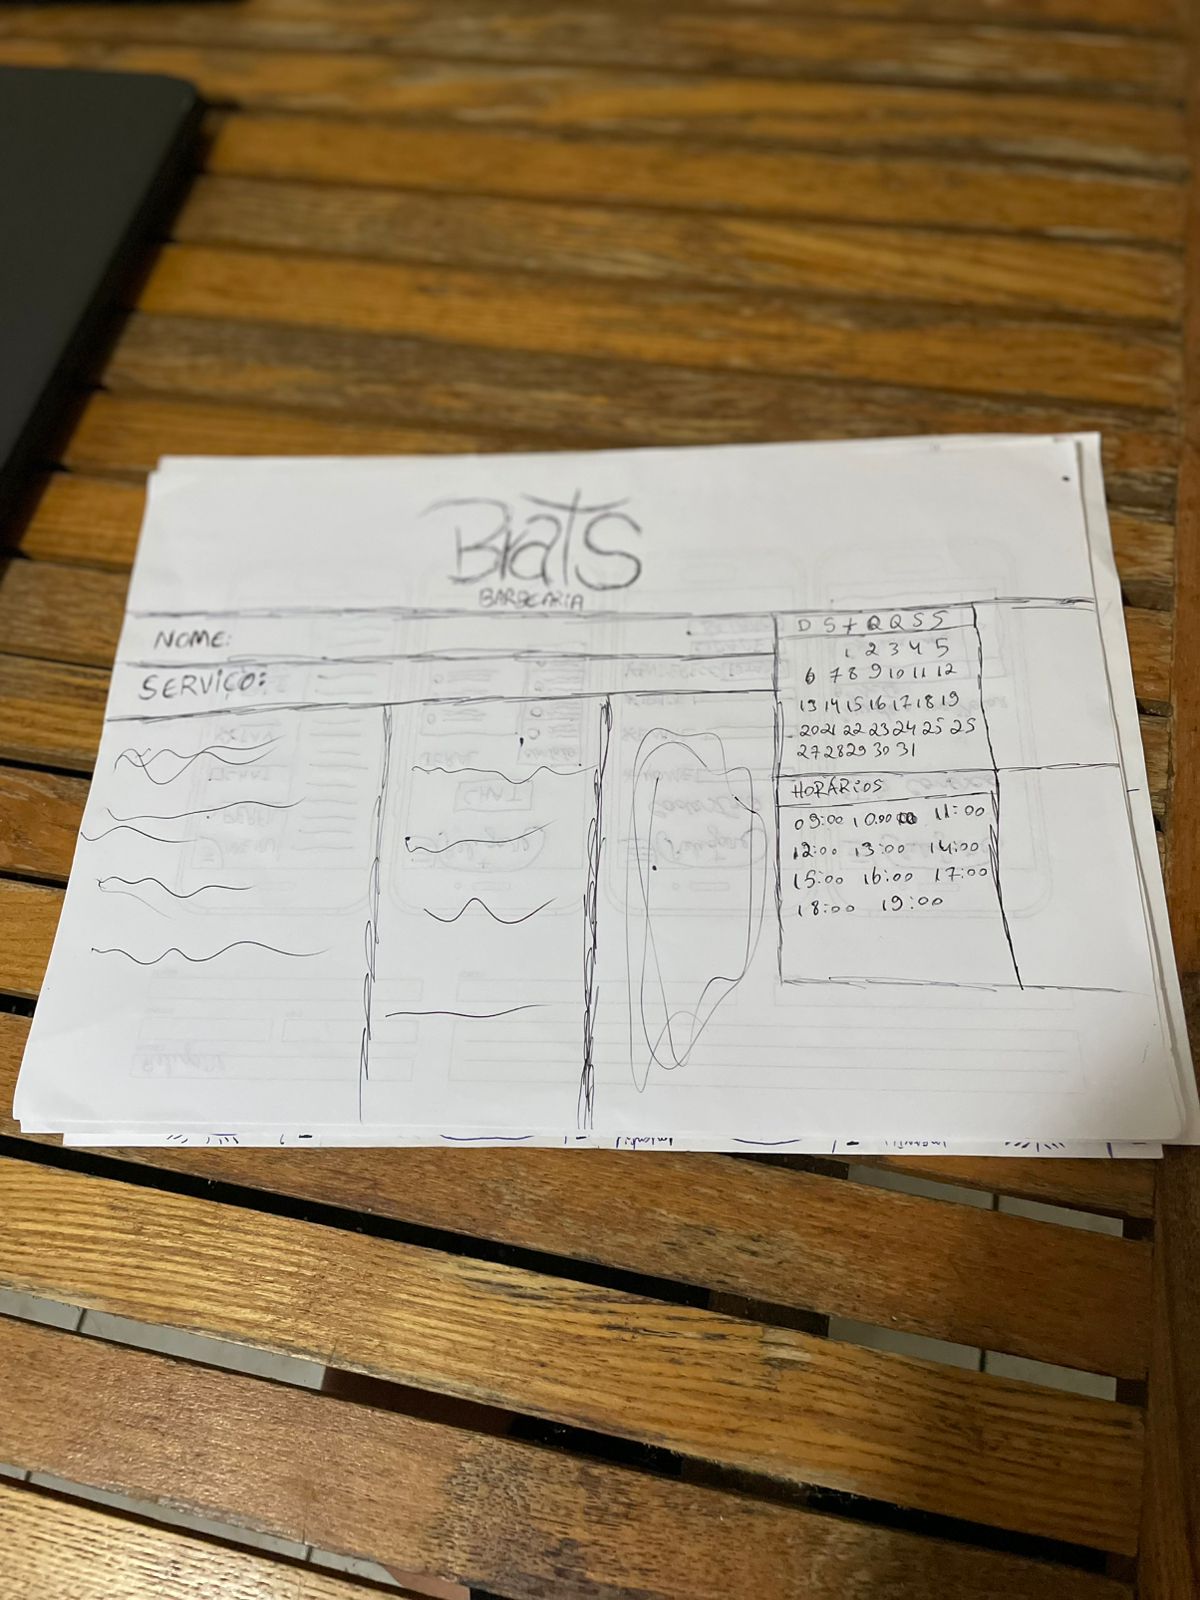 BraTS
BARBEARIA
NOME:
SERVIÇO:
D S T Q Q S S
1 2 3 4 5
6 7 8 9 10 11 12
13 14 15 16 17 18 19
20 21 22 23 24 25 25
27 28 29 30 31
HORÁRIOS
09:00 10:00 11:00
12:00 13:00 14:00
15:00 16:00 17:00
18:00 19:00